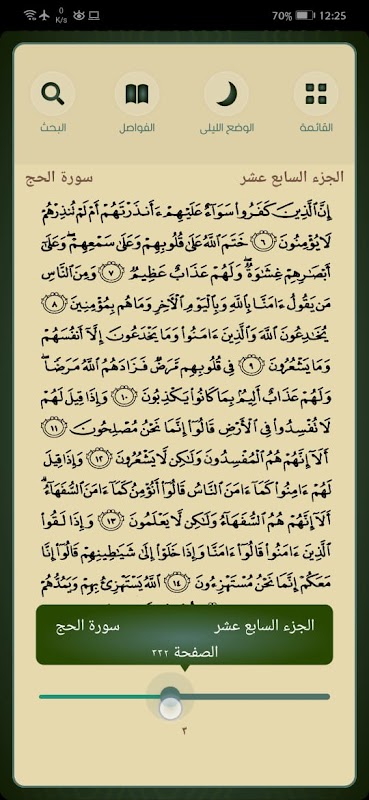 0
K/s
70%
12:25
القائمة
الوضع الليلي
الفواصل
البحث
الجزء السابع عشر
سورة الحج
إِنَّ ٱلَّذِينَ كَفَرُوا۟ سَوَآءٌ عَلَيْهِمْ ءَأَنذَرْتَهُمْ أَمْ لَمْ تُنذِرْهُمْ
لَا يُؤْمِنُونَ ٦ خَتَمَ ٱللَّهُ عَلَىٰ قُلُوبِهِمْ وَعَلَىٰ سَمْعِهِمْ ۖ وَعَلَىٰٓ
أَبْصَٰرِهِمْ غِشَٰوَةٌ ۖ وَلَهُمْ عَذَابٌ عَظِيمٌ ٧ وَمِنَ ٱلنَّاسِ
مَن يَقُولُ ءَامَنَّا بِٱللَّهِ وَبِٱلْيَوْمِ ٱلْءَاخِرِ وَمَا هُم بِمُؤْمِنِينَ ٨
يُخَٰدِعُونَ ٱللَّهَ وَٱلَّذِينَ ءَامَنُوا۟ وَمَا يَخْدَعُونَ إِلَّآ أَنفُسَهُمْ
وَمَا يَشْعُرُونَ ٩ فِى قُلُوبِهِم مَّرَضٌ فَزَادَهُمُ ٱللَّهُ مَرَضًا ۖ
وَلَهُمْ عَذَابٌ أَلِيمٌۢ بِمَا كَانُوا۟ يَكْذِبُونَ ١٠ وَإِذَا قِيلَ لَهُمْ
لَا تُفْسِدُوا۟ فِى ٱلْأَرْضِ قَالُوٓا۟ إِنَّمَا نَحْنُ مُصْلِحُونَ ١١
أَلَآ إِنَّهُمْ هُمُ ٱلْمُفْسِدُونَ وَلَٰكِن لَّا يَشْعُرُونَ ١٢ وَإِذَا قِيلَ
لَهُمْ ءَامِنُوا۟ كَمَآ ءَامَنَ ٱلنَّاسُ قَالُوٓا۟ أَنُؤْمِنُ كَمَآ ءَامَنَ ٱلسُّفَهَآءُ ۗ
أَلَآ إِنَّهُمْ هُمُ ٱلسُّفَهَآءُ وَلَٰكِن لَّا يَعْلَمُونَ ١٣ وَإِذَا لَقُوا۟
ٱلَّذِينَ ءَامَنُوا۟ قَالُوٓا۟ ءَامَنَّا وَإِذَا خَلَوْا۟ إِلَىٰ شَيَٰطِينِهِمْ قَالُوٓا۟ إِنَّا
مَعَكُمْ إِنَّمَا نَحْنُ مُسْتَهْزِءُونَ ١٤ ٱللَّهُ يَسْتَهْزِئُ بِهِمْ وَيَمُدُّهُمْ
الجزء السابع عشر
سورة الحج
الصفحة ٣٣٢
٣